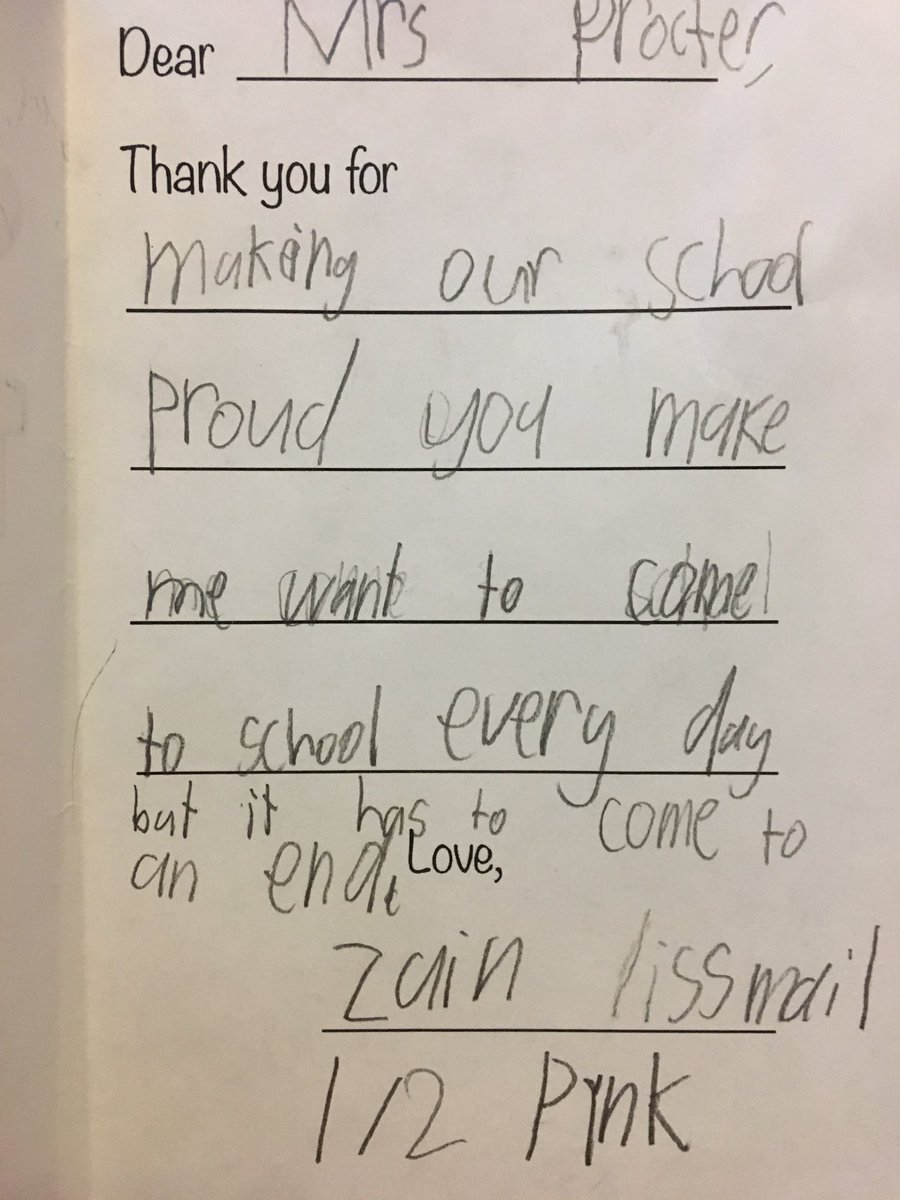 Dear Mrs Procter,
Thank you for
making our school
proud you make
me want to come
to school every day
but it has to come to
an end.
Love,
Zain lissmail
1/2 Pink